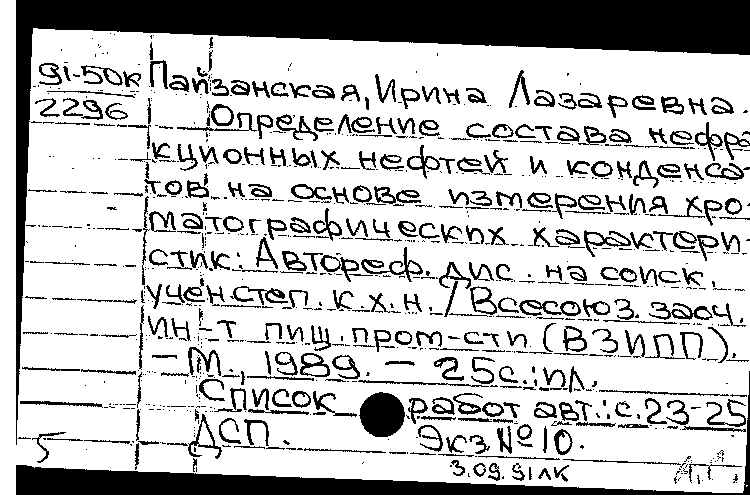 91-50к Пайзанская, Ирина Лазаревна.
2296 Определение состава нефра-
кционных нефтей и конденса-
тов на основе измерения хро-
матографических характери-
стик: Автореф. дис. на соиск.
учен. степ. к.х.н. / Всесоюз. заоч.
ин-т пищ. пром-сти (ВЗИПП).
– М., 1989. – 25с.: ил.
Список работ авт.: с. 23-25
ДСП. Экз. № 10.
5 3.09.91 ЛК А.С.